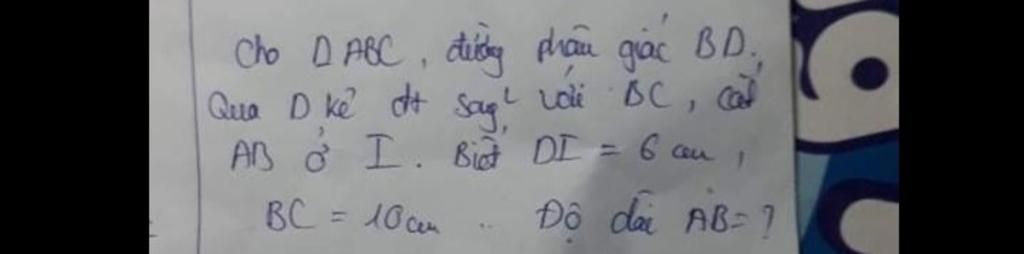 Cho △ABC, đường phân giác BD.
Qua D kẻ đt song² với BC, cắt
AB ở I. Biết DI = 6 cm,
BC = 10cm .. Độ dài AB=?